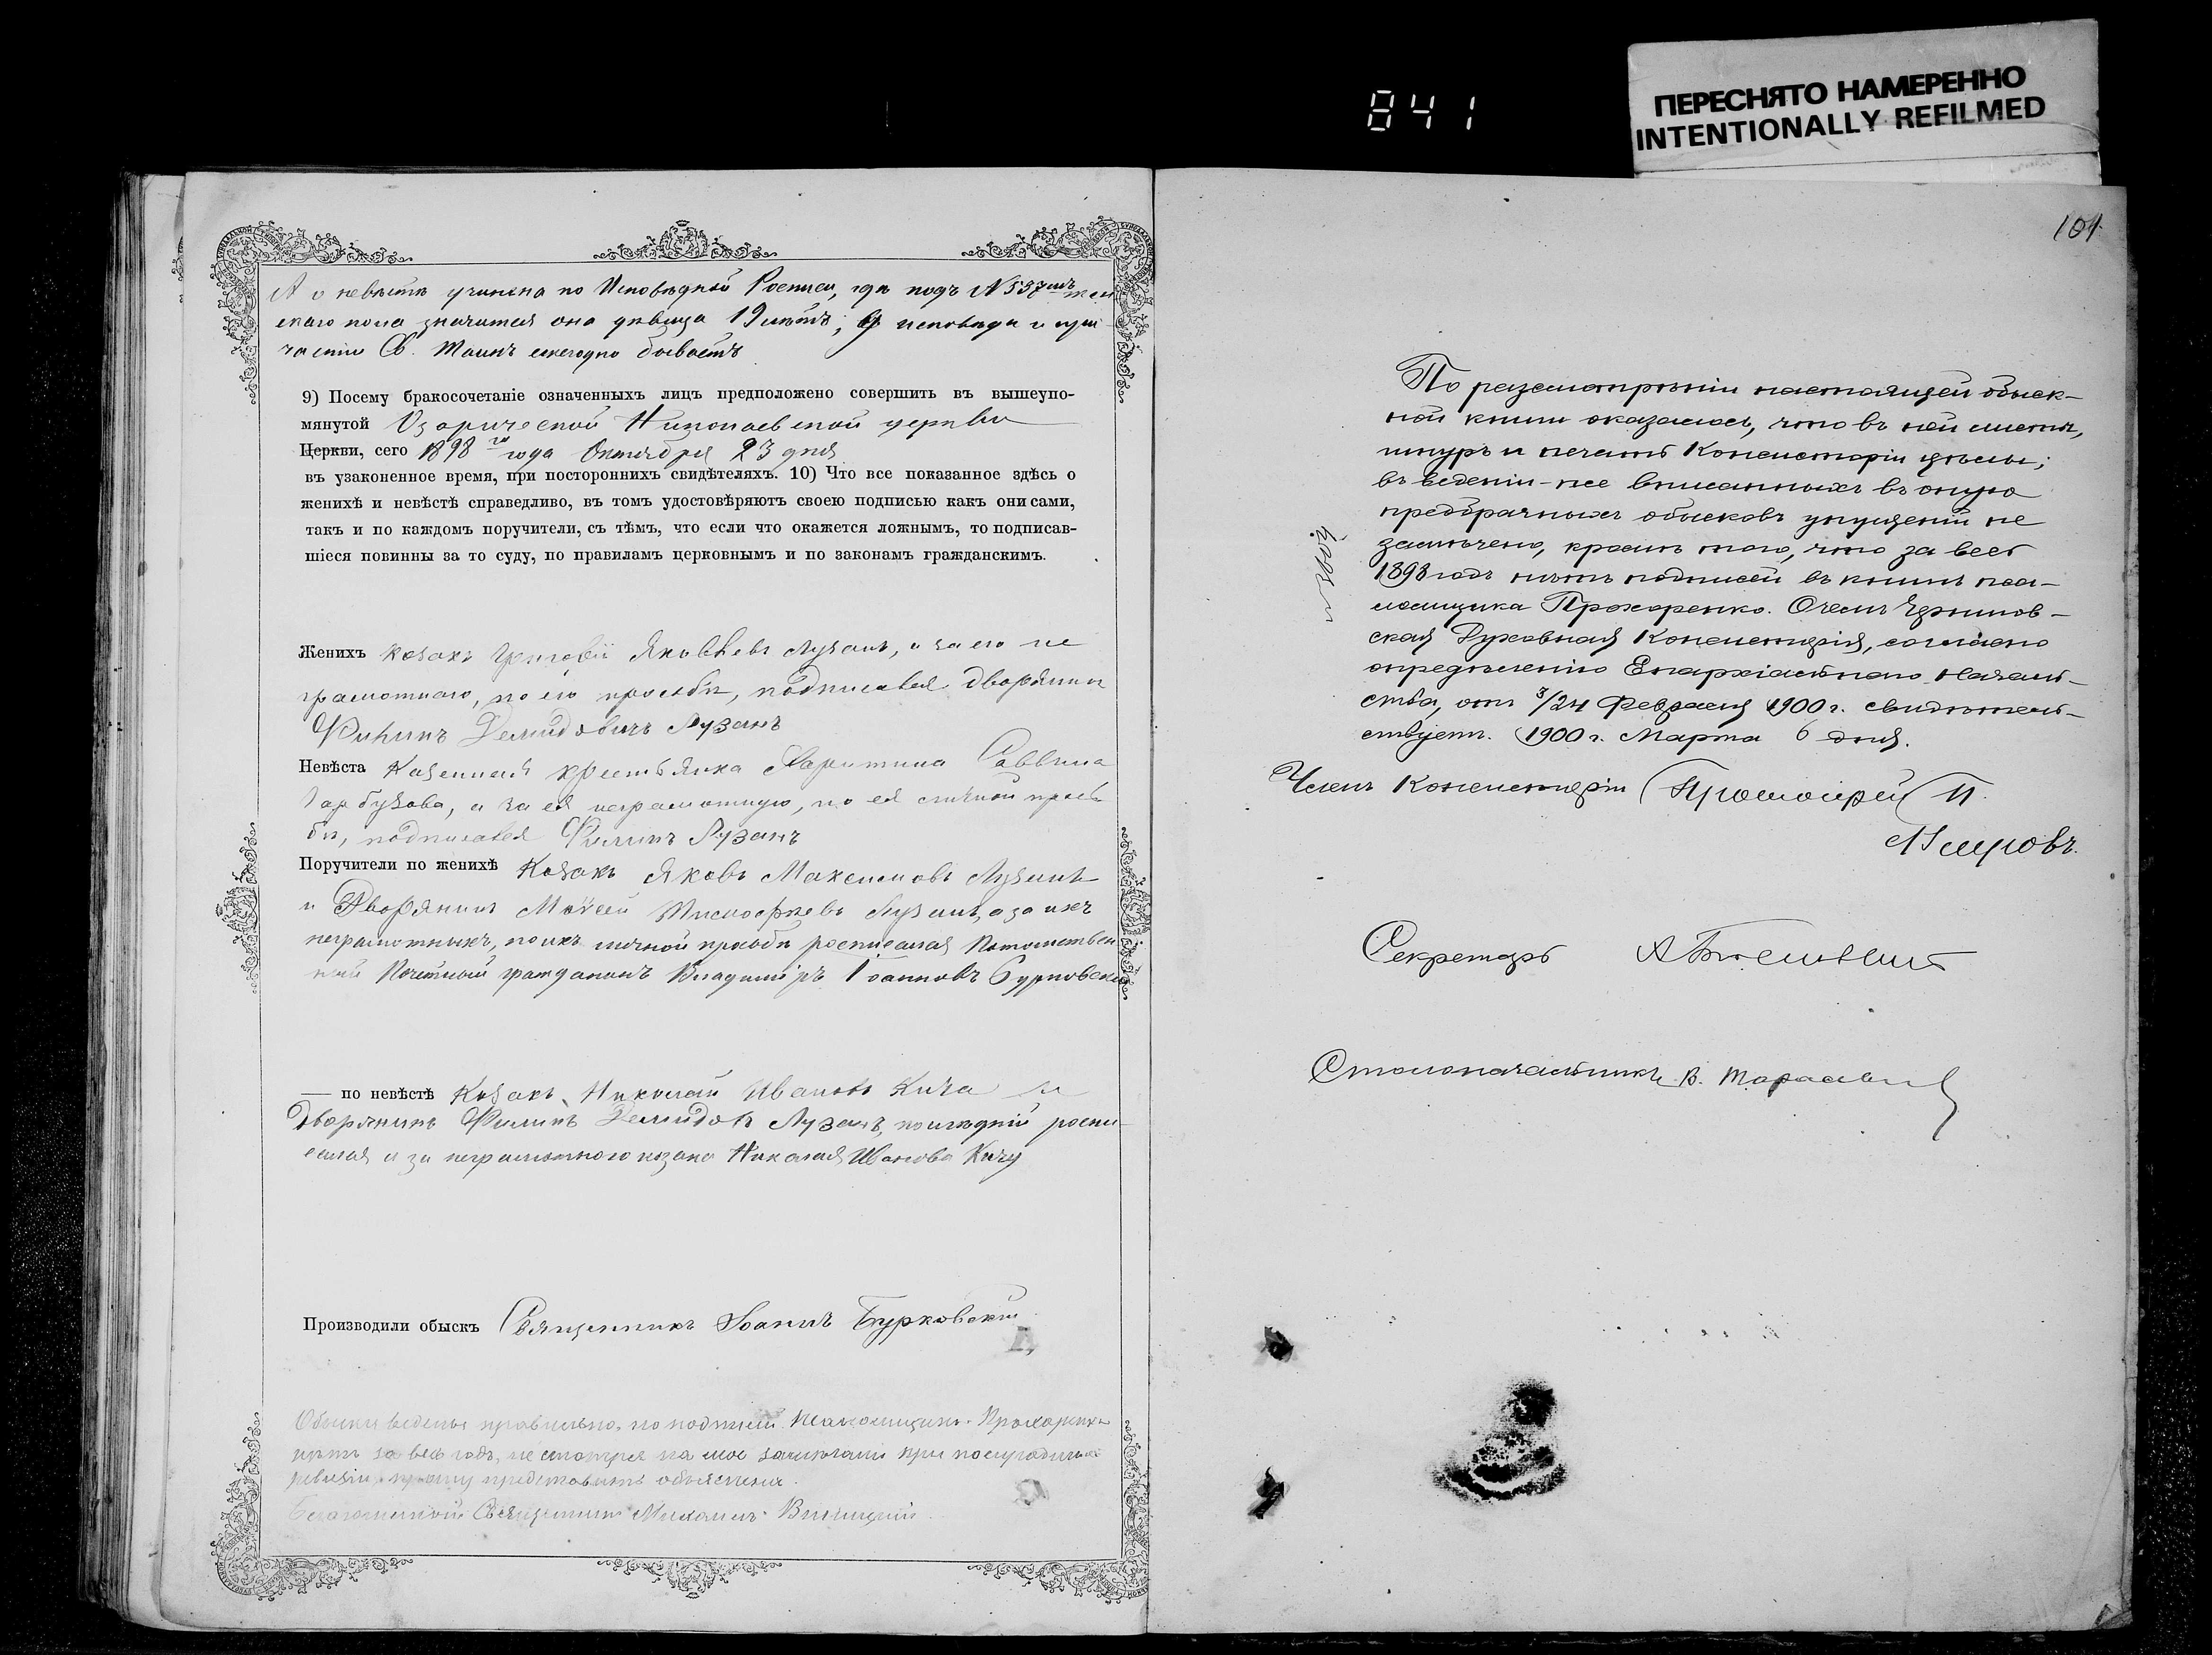 841
ПЕРЕСНЯТО НАМЕРЕННО
INTENTIONALLY REFILMED
А о невѣстѣ учинена по Исповѣдной Росписи, гдѣ подъ № 537мъ жен
скаго пола значится она дѣвица 19 лѣтъ; у исповѣди и при
частія Св. Таинъ ежегодно бываетъ
9) Посему бракосочетаніе означенныхъ лицъ предположено совершить въ вышеупо-
мянутой Узаричской Николаевской церкви
Церкви, сего 1898 го года Октября 23 дня
въ узаконенное время, при постороннихъ свидѣтеляхъ. 10) Что все показанное здѣсь о
женихѣ и невѣстѣ справедливо, въ томъ удостовѣряютъ своею подписью какъ они сами,
такъ и по каждомъ поручители, съ тѣмъ, что если что окажется ложнымъ, то подписав-
шіеся повинны за то суду, по правиламъ церковнымъ и по законамъ гражданскимъ.
Женихъ козакъ Яковлевъ Лузанъ, а за его не
грамотнаго, по его просьбѣ, подписался дворянинъ
Филипъ Демидовичъ Лузанъ
Невѣста Казенная крестьянка Харитина Саввина
Гарбузова, а за ея неграмотную, по ея личной прось
бѣ, подписался Филипъ Лузанъ
Поручители по женихѣ Козакъ Яковъ Максимовъ Лузанъ
и Дворянинъ Моѵсей Тимофѣевъ Лузанъ, а за ихъ
неграмотныхъ, по ихъ личной прозьбѣ росписался Потомствен
ный Почетный гражданинъ Владиміръ Іоанновъ Бурковскій
— по невѣстѣ Козакъ Николай Ивановъ Кича и
Дворянинъ Филипъ Демидовъ Лузанъ, послѣдній роспи-
сался и за неграмотного козака Николая Иванова Кичу
Производили обыскъ Священникъ Іоаннъ Бурковскій
Обыски ведены правильно, но подписей Псаломщика Прохоренка
нѣтъ за весь годъ, не смотря на мое замѣчаніе при полугодичной
ревизіи прошу представить объясненія
Благочинный Священникъ Михаилъ
101.
По разсмотрѣніи настоящей обыск-
ной книги оказалось, что въ ней листы,
шнуръ и печать Консисторіи цѣлы;
въ веденіи-же вписанныхъ въ оную
предбрачныхъ обысковъ упущеній не
замѣчено, кромѣ того, что за весь
1898 годъ нѣтъ подписей въ книгѣ пса-
ломщика Прохоренко. О чемъ Чернигов-
ская Духовная Консисторія, согласно
опредѣленію Епархіальнаго Началь-
ства, отъ 3/24 Февраля 1900 г. свидѣтель-
ствуетъ. 1900 г. Марта 6 дня.
Членъ Консисторіи Протоіерей
Секретарь
Столоначальникъ В.